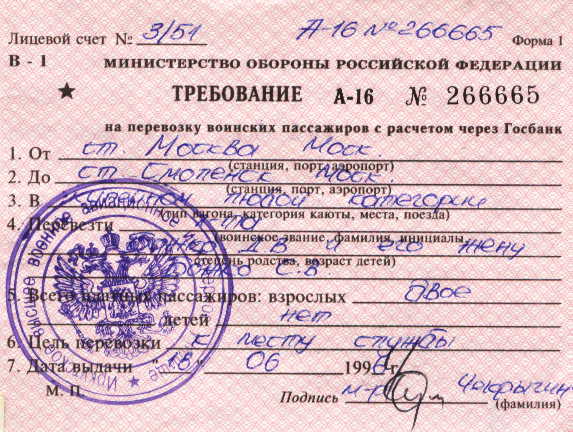 Лицевой счет № 3/51 А-16 № 266665 Форма 1
В - 1 МИНИСТЕРСТВО ОБОРОНЫ РОССИЙСКОЙ ФЕДЕРАЦИИ
★ ТРЕБОВАНИЕ А-16 № 266665
на перевозку воинских пассажиров с расчетом через Госбанк
1. От ст. Москва Моск.
(станция, порт, аэропорт)
2. До ст. Смоленск Моск.
(станция, порт, аэропорт)
3. В любой категории
(тип вагона, категория каюты, места, поезда)
4. Перевезти
(воинское звание, фамилия, инициалы,
и его жену
степень родства, возраст детей)
С.В.
5. Всего платных пассажиров: взрослых двое
детей нет
6. Цель перевозки к месту службы
7. Дата выдачи "18" 06 199 г.
М. П. Подпись м-р
(фамилия)
Иркутское высшее военное авиационное